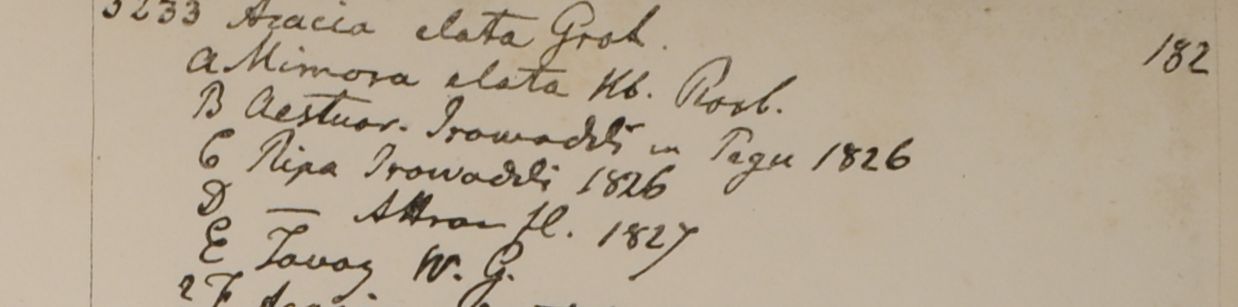 5233 Acacia elata Grah. 182
a Mimosa elata Hb. Roxb.
B Aestuar. Irawaddi in Pegu 1826
C Ripa Irawaddi 1826
D — Attran fl. 1827
E Tavoy W. G.